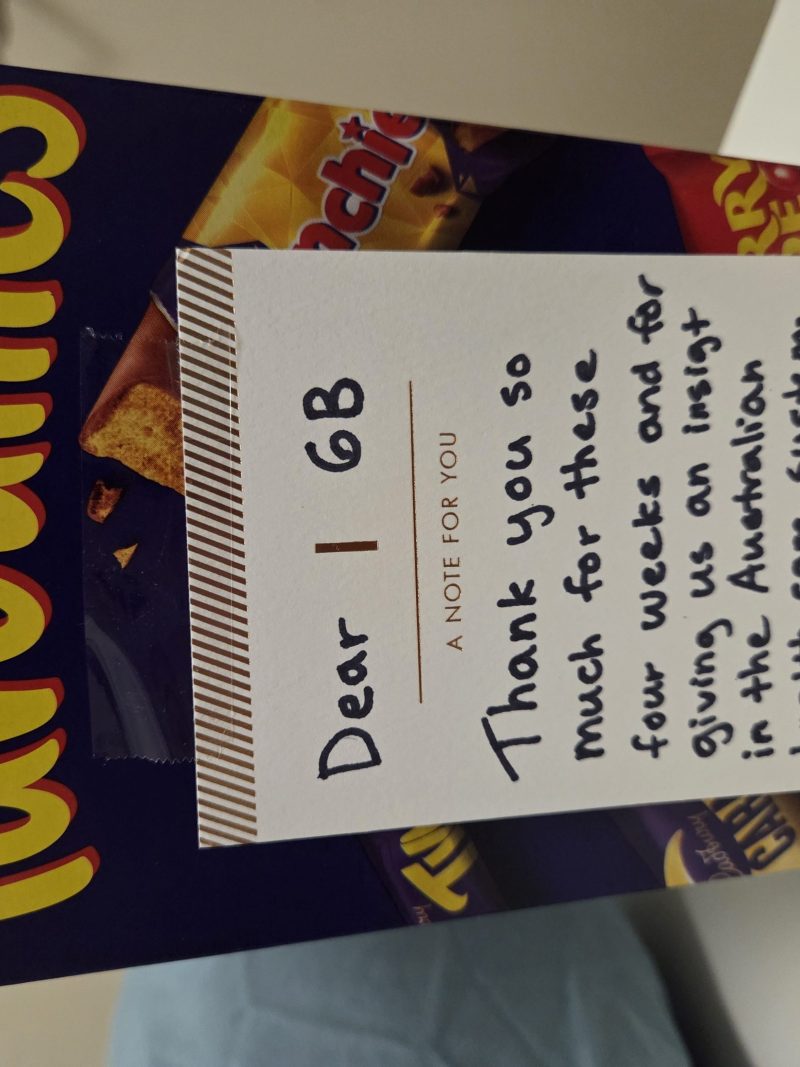 Favourites
Crunchie
Dear 6B
A NOTE FOR YOU
Thank you so
much for these
four weeks and for
giving us an insigt
in the Australian
health care system
Cadbury